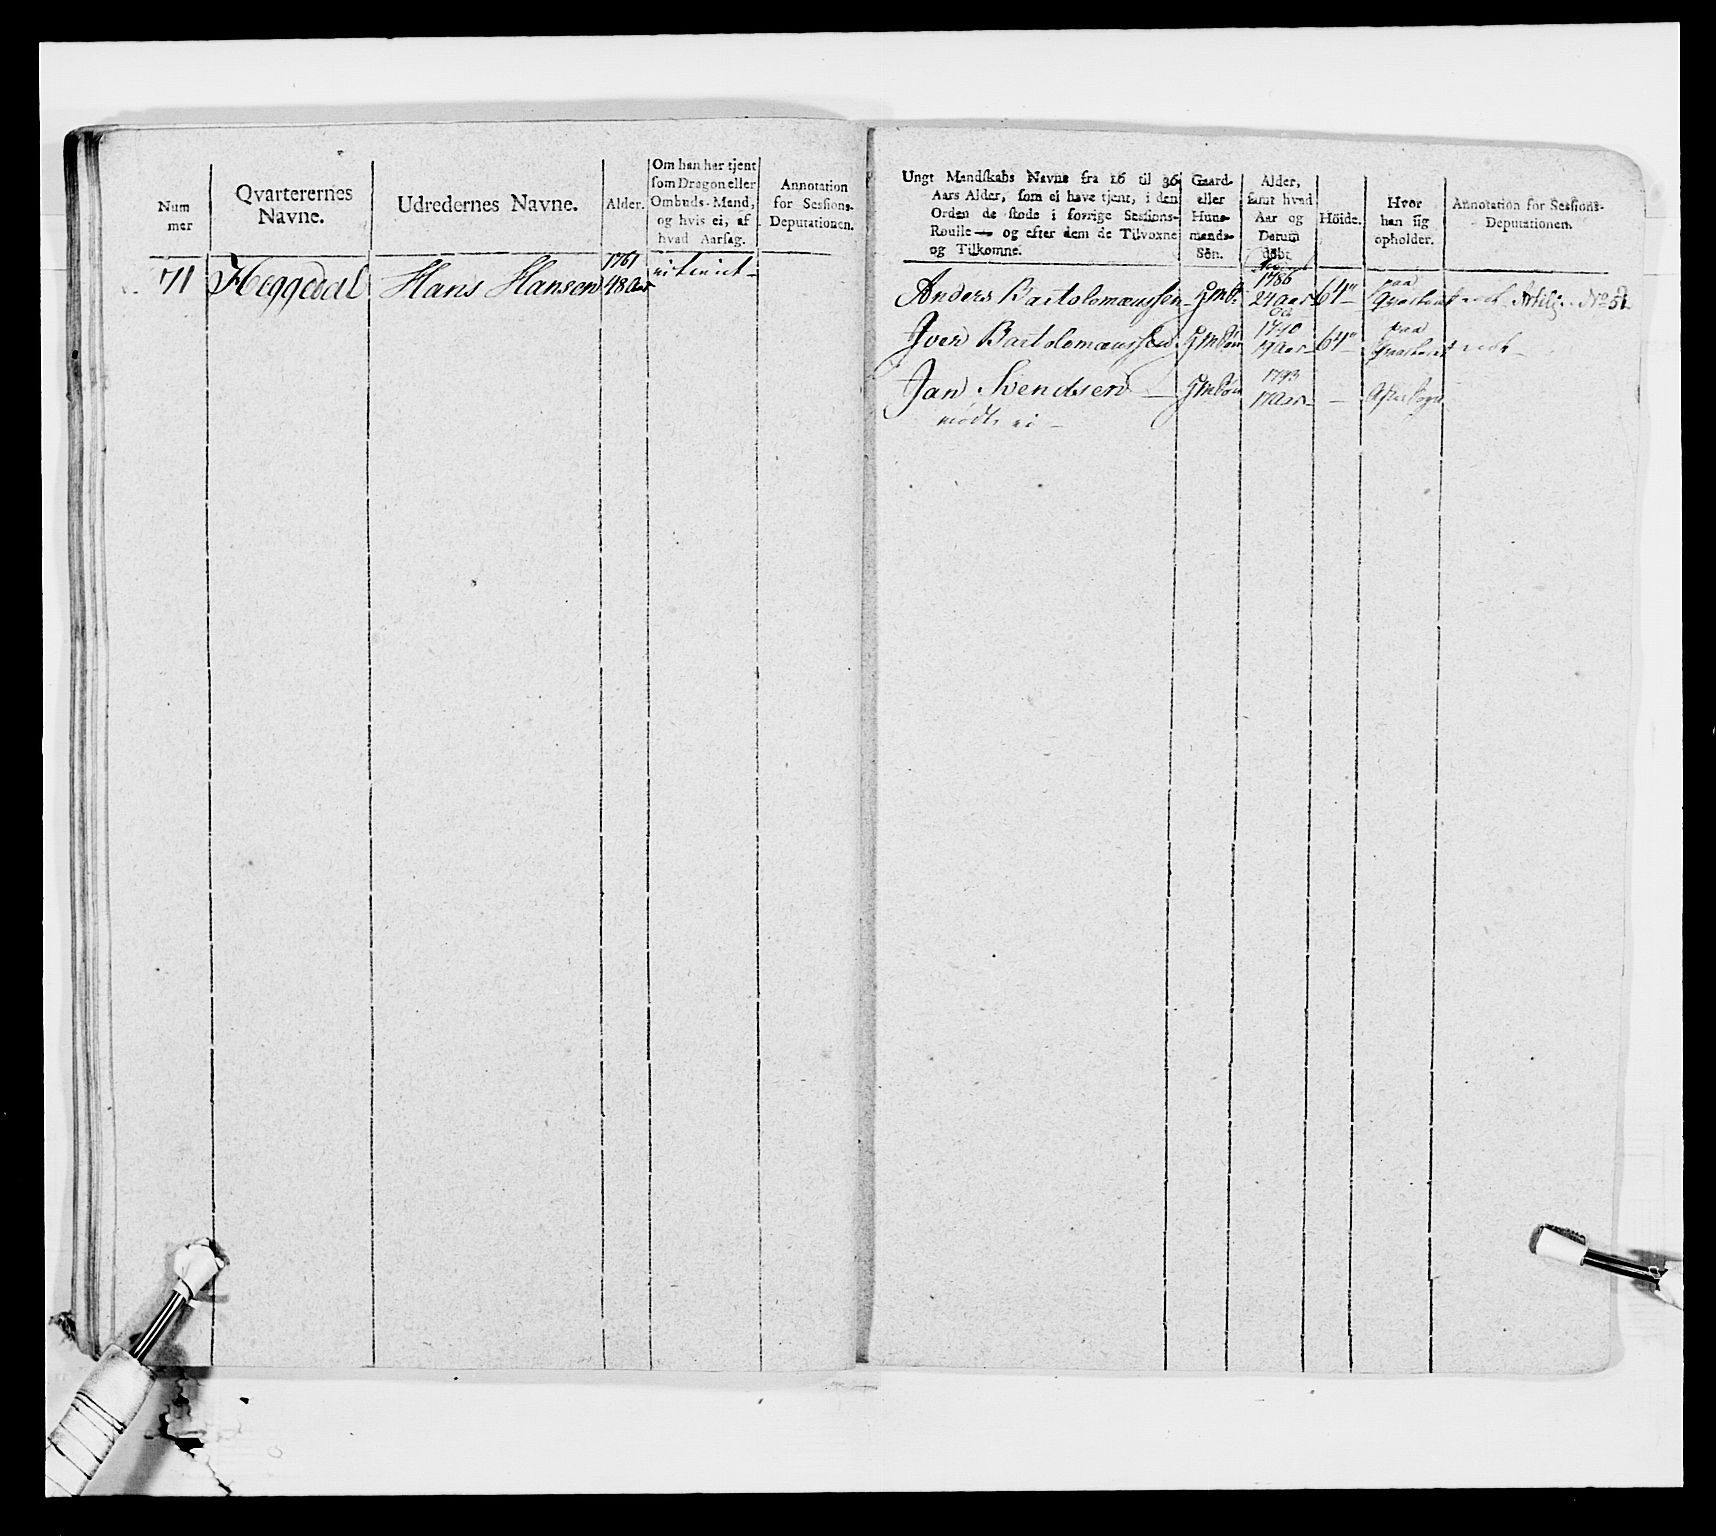 Num
mer
Qvarterernes
Navne.
Udredernes Navne.
Alder.
Om han har tjent
som Dragon eller
Ombuds-Mand,
og hvis ei, af
hvad Aarsag.
Annotation
for Sessions-
Deputationen.
71 Heggedal Hans Hansen 1761
48 Aar ei tient
Ungt Mandskabs Navne fra 16 til 36
Aars Alder, som ei have tjent, i den
Orden de stode i forrige Sessions-
Roulle — og efter dem de Tilvoxne
og Tilkomne.
Gaard-
eller
Huus-
mands-
Søn.
Alder,
samt hvad
Aar og
Datum
født.
Höide.
Hvor
han sig
opholder.
Annotation for Sessions-
Deputationen.
1786 paa
Anders Bartolomæussen 24 Aar 64" Qvarteret No 51
1790 paa
Iver Bartolomæussen 19 Aar 64" Qvarteret
1793
Jan Svendsen — 17 Aar —
mødte ei —